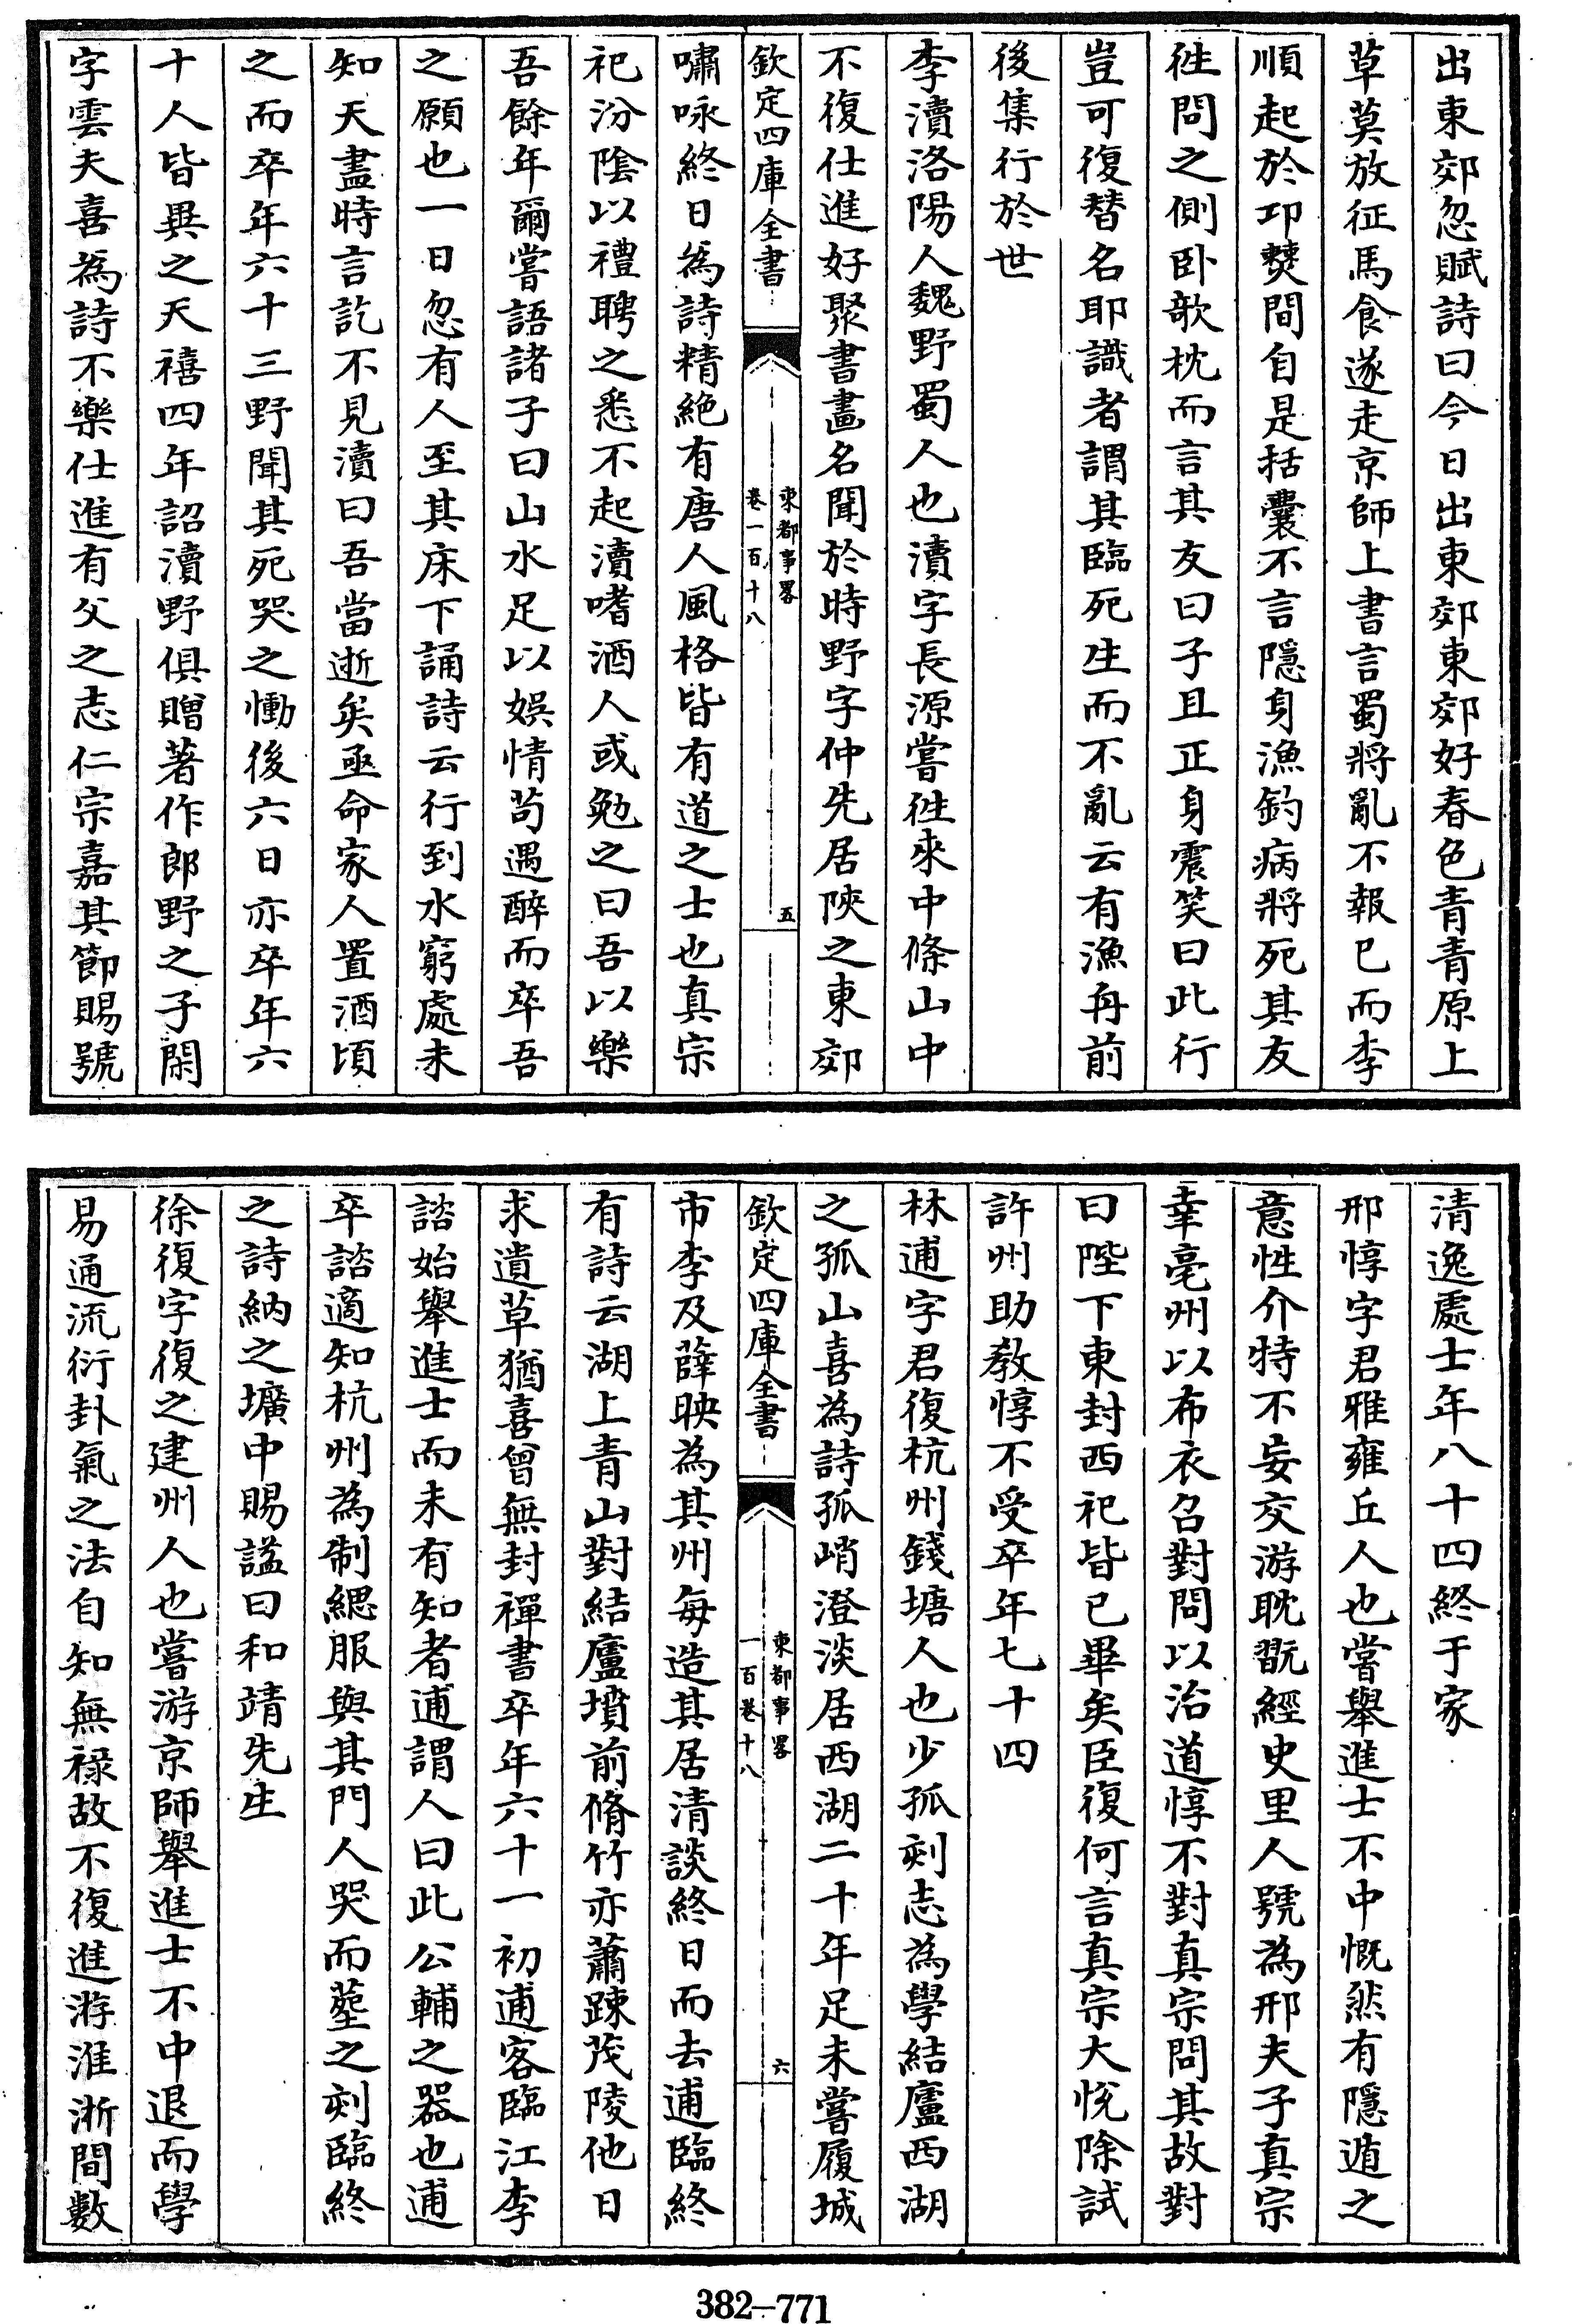 出東郊忽賦詩曰今日出東郊東郊好春色青青原上
草莫放征馬食遂走京師上書言蜀將亂不報已而李
順起於卭僰間自是括囊不言隱身漁釣病將死其友
徃問之側卧欹枕而言其友曰子且正身震笑曰此行
豈可復替名耶識者謂其臨死生而不亂云有漁舟前
後集行於世
李瀆洛陽人魏野蜀人也瀆字長源嘗徃來中條山中
不復仕進好聚書畫名聞於時野字仲先居陜之東郊
欽定四庫全書
東都事畧
卷一百十八
五
嘯咏終日為詩精絶有唐人風格皆有道之士也真宗
祀汾隂以禮聘之悉不起瀆嗜酒人或勉之曰吾以樂
吾餘年爾嘗語諸子曰山水足以娛情苟遇醉而卒吾
之願也一日忽有人至其床下誦詩云行到水窮處未
知天盡時言訖不見瀆曰吾當逝矣亟命家人置酒頃
之而卒年六十三野聞其死哭之慟後六日亦卒年六
十人皆異之天禧四年詔瀆野俱贈著作郎野之子閑
字雲夫喜為詩不樂仕進有父之志仁宗嘉其節賜號
清逸處士年八十四終于家
邢惇字君雅雍丘人也嘗舉進士不中慨然有隱遁之
意性介特不妄交游耽翫經史里人號為邢夫子真宗
幸亳州以布衣召對問以治道惇不對真宗問其故對
曰陛下東封西祀皆已畢矣臣復何言真宗大悅除試
許州助教惇不受卒年七十四
林逋字君復杭州錢塘人也少孤刻志為學結廬西湖
之孤山喜為詩孤峭澄淡居西湖二十年足未嘗履城
欽定四庫全書
東都事畧
一百卷十八
六
市李及薛映為其州每造其居清談終日而去逋臨終
有詩云湖上青山對結廬墳前脩竹亦蕭踈茂陵他日
求遺草猶喜曾無封禪書卒年六十一初逋客臨江李
諮始舉進士而未有知者逋謂人曰此公輔之器也逋
卒諮適知杭州為制緦服與其門人哭而塟之刻臨終
之詩納之壙中賜諡曰和靖先生
徐復字復之建州人也嘗游京師舉進士不中退而學
易通流衍卦氣之法自知無祿故不復進游淮浙間數
382-771